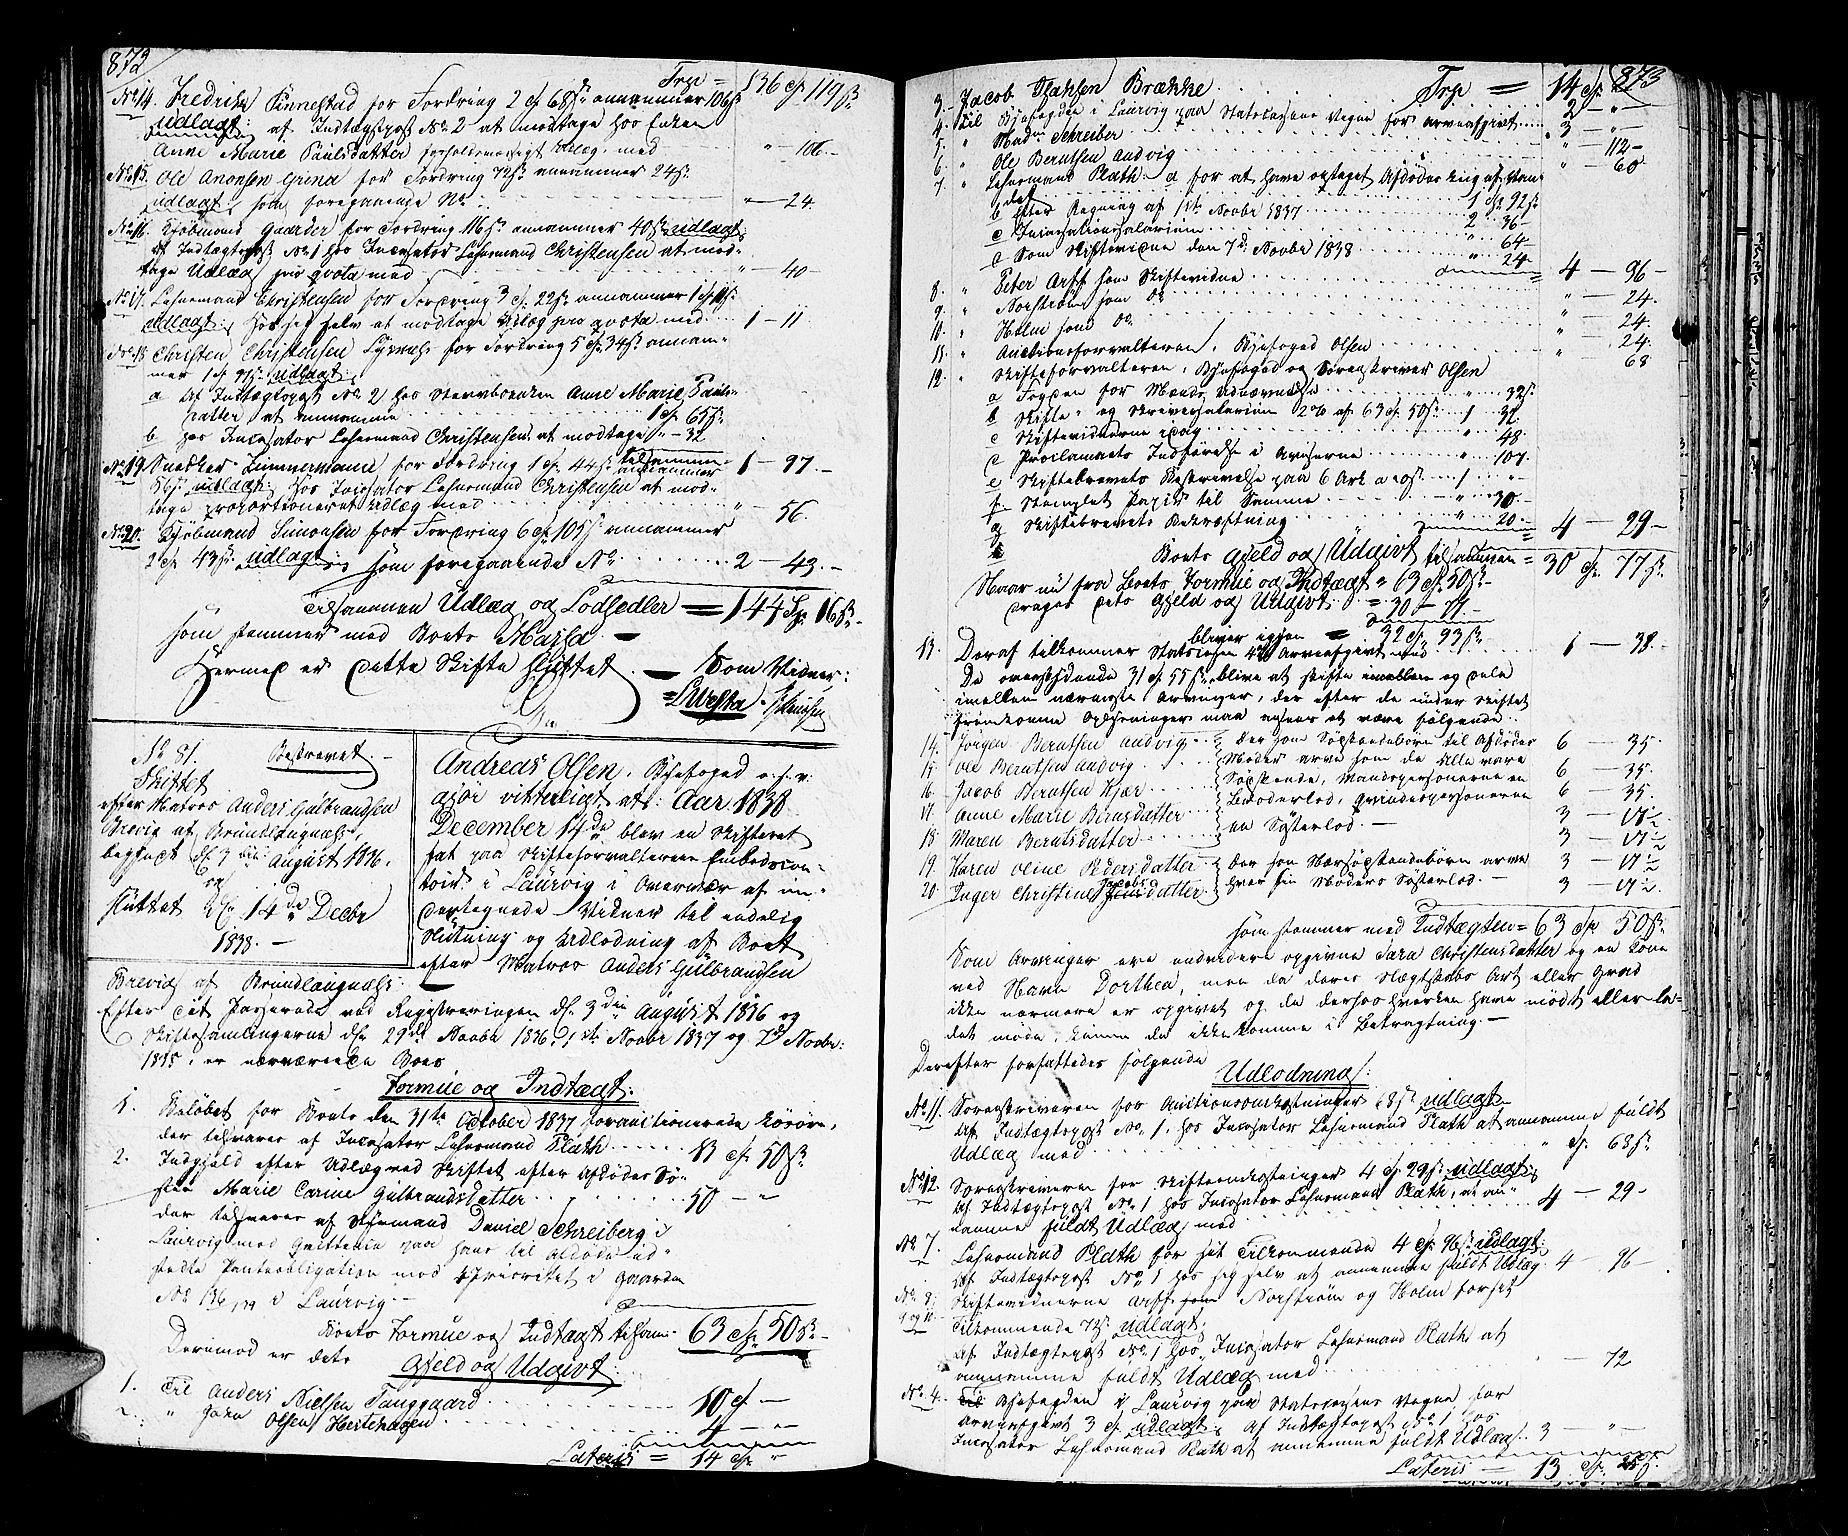 872
Trp = 136 Sp 119 ß
No 14. Fredrik Finnestad for Fordring 2 Sp 68 ß annammer 106 ß
udlagt: af Indtægtspost No 2 at modtage hos Enken
Anne Marie Paulsdatter forholdsmæssigt Udlæg med " — 106 —
No 15. Ole Anonsen Grina for Fordring 72 ß annammer 24 ß
udlagt: som foregaaende No " — 24
No 16. Kjøbmand Gaarder for Fordring 116 ß annammer 40 ß udlagt:
Af Indtægtspost No 1 hos Incasator Lehnsmand Christensen at mod-
tage Udlæg pro qvota med " — 40 —
No 17. Lehnsmand Christensen for Fordring 3 Sp 22 ß annammer 1 Sp 11 ß
udlagt: hos sig selv at modtage Udlæg pro qvota med 1 — 11
No 18 Christen Christensen for Fordring 5 Sp 34 ß annam-
mer 1 Sp 97 ß udlagt:
a Af Indtægtspost No 2 hos Stervboenken Anne Marie Pauls-
datter at annamme 1 Sp 65 ß
b hos Incasator Lehnsmand Christensen at modtage " — 32
tilsammen 1 — 97. —
No 19. Snedker Zimmermann for Fordring 1 Sp 44 ß annammer
56 ß udlagt: hos Incasator Lehnsmand Christensen at mod-
tage proportioneret Udlæg med " — 56.
No 20. Kjøbmand Simonsen for Fordring 6 Sp 105 ß annammer
2 Sp 43 ß udlagt: som foregaaende No 2 — 43. —
Tilsammen Udlæg og Lodsedler = 144 Sp 16 ß
som stemmer med Boets Massa. —
Hermed er dette Skifte sluttet. — Som Vidner:
No 81. Beskrevet
Skiftet
efter Matros Anders Gulbrandsen
Brevig af Brundlangnæs,
begyndt d. 3die August 1836.
og
sluttet d. 14de Decbr
1838. —
Andreas Olsen, Byefoged o. s. v.
gjør vitterligt at: Aar 1838
December 14de blev en Skifteret
sat paa Skifteforvalterens Embedscon-
toir i Laurvig i Overvær af un-
dertegnede Vidner til endelig
Slutning og Udlodning af Boet
efter Matros Anders Gulbrandsen
Brevig af Brundlangnæs.
Efter det Passerede ved Registreringen d. 3die August 1836 og
Skiftesamlingerne d. 29de Novbr 1836, 1ste Novbr 1837 og 7de Novbr:
1838, er nærværende Boes
Formue og Indtægt:
1. Beløbet for Boets den 31te October 1837 forauctionerede Løsøre,
der tilsvares af Incasator Lehnsmand Plath 13 Sp 50 ß
2. Indgjeld efter Udlæg ved Skiftet efter Afdødes Sø-
ster Marie Carine Gulbrandsdatter 50 — "
der tilsvares af Styrmand Daniel Schreiberg i
Laurvig mod
stedte Panteobligation med Prioritet i Gaarden
No 136 i Laurvig. —
Boets Formue og Indtægt tilsam. 63 Sp 50 ß —
Derimod er dets Gjeld og Udgivt:
1. Til Anders Nielsen Tanggaard 10 Sp —
2. " John Olsen Hertehagen 4 — "
Lateris = 14 Sp "
873
Trp = 14 Sp "
3 — Jacob Isaksen Brække 2 — "
4. Til Byefogden i Laurvig paa Statscassens Vegne for Arveafgivt 3 — "
5. " Mad. Schreiber " — 112 —
6. " Ole Berntsen Andvig " — 60
7. " Lehnsmand Plath: a for at have opsøgt Afdødes Liig af Van-
det 1 Sp 92 ß
b Efter Regning af 1ste Novbr 1837 2 36 —
c Incasationssalarium " 64 —
d Som Skiftevidne den 7de Novbr 1838 " 24 —
4 — 96 —
8. " Peter Arff som Skiftevidne " — 24.
9. " Norstrøm som do " — 24.
10. " Holm som do " — 24
11. " Auctionsforvalteren, Byefoged Olsen " — 68
12. " Skifteforvalteren, Byefoged og Sorenskriver Olsen
a Fogden for Mands Udnævnelse " 32 ß
b Skifte- og Skriversalarium 2% af 63 Sp 50 ß 1 32.
c Skiftevidnerne idag " 48
d Proclamaets Indførelse i Aviserne " 107
e Skiftebrevets Beskrivelse paa 6 Ark a 20 ß 1 "
f Stemplet Papir til Samme " 30 —
g Skiftebrevets Bekræftning " 20 —
4 — 29 —
Boets Gjeld og Udgivt tilsammen = 30 Sp 77 ß
Naar nu fra Boets Formue og Indtægt = 63 Sp 50 ß —
drages dets Gjeld og Udgivt = 30 — 77 —
bliver igjen = 32 Sp 93 ß
13. Deraf tilkommer Statscassen 4% Arveafgivt med 1 — 38. —
De overskydende 31 Sp 55 ß blive at skifte imellem og dele
imellem nærmeste Arvinger, der efter de under Skiftet
fremkomne Oplysninger maa ansees at være følgende:
14. Jørgen Berntsen Andvig 6 — 35 —
15 Ole Berntsen Andvig 6 — 35.
16 Jacob Berntsen Kjær 6 — 35
17 Anne Marie Berntsdatter 3 — 17½
18 Maren Berntsdatter 3 — 17½
der som Søskendebørn til Afdødes
Moder arve som de Alle vare
Søskende, Mandspersonerne en
Broderlod, Qvindespersonerne
en Søsterlod. —
19 Karen Oline Pedersdatter 3 — 17½
20 Inger Christine Jacobsdatter 3 — 17½
der som Nærsøskendebørn arve
hver sin Moders Søsterlod. —
som stemmer med Indtægten = 63 Sp 50 ß
Som Arvinger ere endvidere opgivne Sara Christensdatter og en Kone
ved Navn Dorthea, men da deres Slægtskabs Art eller Grad
ikke nærmere er opgivet og da derhos hverken have mødt eller la-
det møde, kunne de ikke komme i Betragtning. —
Derefter forfattedes følgende
Udlodning:
No 11. Sorenskriveren for Auctionsomkostninger 68 ß udlagt
Af Indtægtspost No 1. hos Incasator Lehnsmand Plath at annamme fuldt
Udlæg med " Sp 68 ß
No 12. Sorenskriveren for Skifteomkostninger 4 Sp 29 ß udlagt:
Af Indtægtspost No 1 hos Incasator Lehnsmand Plath, at an-
namme fuldt Udlæg med 4 — 29 —
No 7. Lehnsmand Plath for sit Tilkommende 4 Sp 96 ß udlagt:
Af Indtægtspost No 1 hos sig selv at annamme fuldt Udlæg 4 — 96 —
No 8, Skiftevidnerne Arff, Norstrøm og Holm for sit
9 og 10 Tilkommende 72 ß udlagt:
Af Indtægtspost No 1 hos Incasator Lehnsmand Plath at
annamme fuldt Udlæg med " — 72
No 4. Byefogden i Laurvig paa Statscassens Vegne for
Arveafgivt 3 Sp udlagt: Af Indtægtspost No 1 hos
Incasator Lehnsmand Plath at annamme fuldt Udlæg 3 — " —
Lateris = 13 Sp